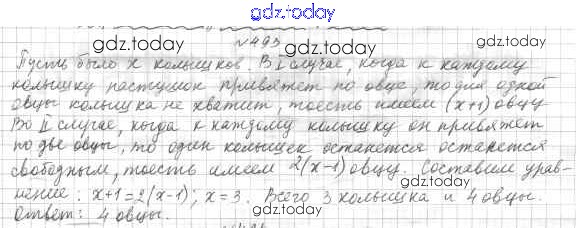 gdz.today
№ 493
gdz.today
gdz.today
Пусть было x колышков. В I случае, когда к каждому
колышку пастушок привяжет по овце, то для одной
овцы колышка не хватит, тоесть имеем (x+1) овцу
gdz.today
gdz.today
Во II случае, когда к каждому колышку он привяжет
по две овцы, то один колышек останется останется
свободным, тоесть имеем 2(x-1) овцу. Составим урав-
gdz.today
gdz.today
нение: x+1=2(x-1); x=3. Всего 3 колышка и 4 овцы.
Ответ: 4 овцы.
gdz.today